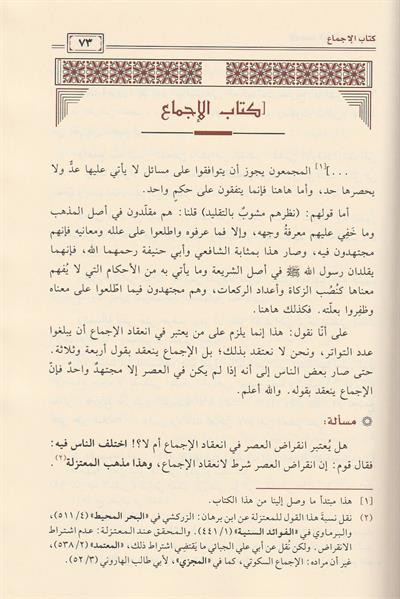 كتاب الإجماع
٧٣
[كتاب الإجماع
...][١] المجمعون يجوز أن يتوافقوا على مسائل لا يأتي عليها عدٌّ ولا
يحصرها حد، وأما هاهنا فإنما يتفقون على حكمٍ واحد.
أما قولهم: (نظرهم مشوبٌ بالتقليد) قلنا: هم مقلّدون في أصل المذهب
وما خَفِي عليهم معرفةُ وجهه، وإلا فما عرفوه واطلعوا على علله ومعانيه فإنهم
مجتهدون فيه، وصار هذا بمثابة الشافعي وأبي حنيفة رحمهما الله، فإنهما
يقلدان رسول الله ﷺ في أصل الشريعة وما يأتي به من الأحكام التي لا يُفهم
معناها كنُصُب الزكاة وأعداد الركعات، وهم مجتهدون فيما اطّلعوا على معناه
وظفِروا بعلّته. فكذلك هاهنا.
على أنّا نقول: هذا إنما يلزم على من يعتبر في انعقاد الإجماع أن يبلغوا
عدد التواتر، ونحن لا نعتقد بذلك؛ بل الإجماع ينعقد بقول أربعة وثلاثة.
حتى صار بعض الناس إلى أنه إذا لم يكن في العصر إلا مجتهدٌ واحدٌ فإنّ
الإجماع ينعقد بقوله. والله أعلم.
مسألة:
هل يُعتبر انقراض العصر في انعقاد الإجماع أم لا؟! اختلف الناس فيه:
فقال قوم: إن انقراض العصر شرط لانعقاد الإجماع، وهذا مذهب المعتزلة(٢).
[١] هذا مبتدأ ما وصل إلينا من هذا الكتاب.
(٢) نقل نسبةَ هذا القول للمعتزلة عن ابن برهان: الزركشي في «البحر المحيط» (٥١١/٤)،
والبرماوي في «الفوائد السنية» (٤٤١/١). والمحقق عند المعتزلة: عدم اشتراط
الانقراض. ولكن نُقل عن أبي علي الجبائي ما يَقتضِي اشتراط ذلك، «المعتمد» (٥٣٨/٢)،
غير أن مراده: الإجماع السكوتي، كما في «المجزي»، لأبي طالب الهاروني (٥٢/٣).